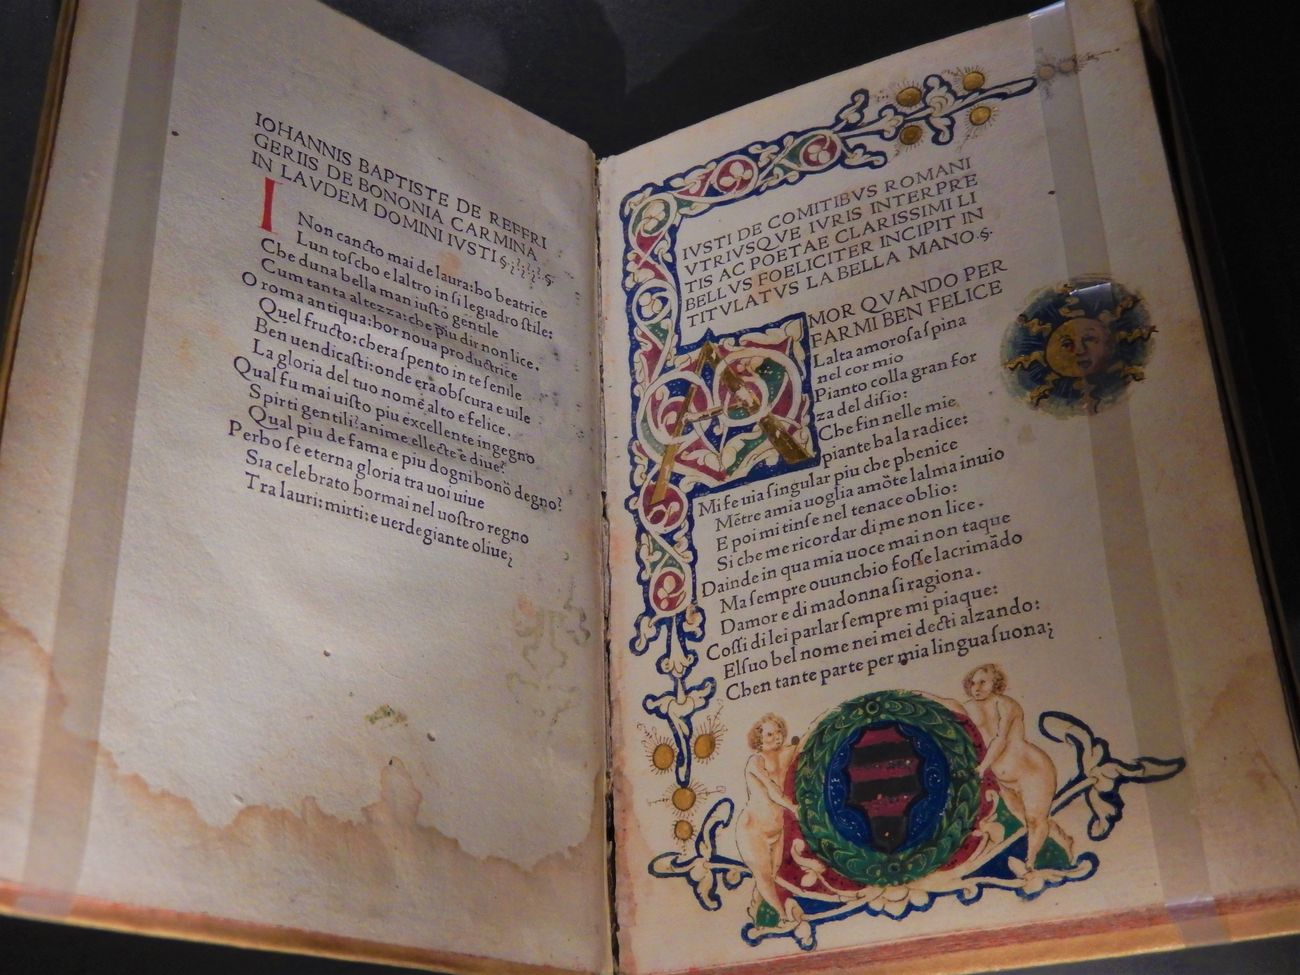 IOHANNIS BAPTISTE DE REFFRI
GERIIS DE BONONIA CARMINA
IN LAVDEM DOMINI IVSTI §·⁊·⁊·⁊·§
I Non cancto mai de laura: ho beatrice
Lun toscho e laltro in si legiadro stile:
Che duna bella man iusto gentile
Cum tanta altezza: che piu dir non lice.
O roma antiqua: hor noua productrice
Quel fructo: chera spento in te senile
Ben uendicasti: onde era obscura e uile
La gloria del tuo nome alto e felice.
Qual fu mai uisto piu excellente ingegno
Spirti gentili? anime ellecte e diue?
Qual piu de fama e piu dogni bono degno?
Perho se eterna gloria tra uoi uiue
Sia celebrato hormai nel uostro regno
Tra lauri: mirti: e uerdegiante oliue⁊
IVSTI DE COMITIBVS ROMANI
VTRIVSQVE IVRIS INTERPRE
TIS AC POETAE CLARISSIMI LI
BELLVS FOELICITER INCIPIT IN
TITVLATVS LA BELLA MANO·§·
AMOR QVANDO PER
FARMI BEN FELICE
Lalta amorosa spina
nel cor mio
Pianto colla gran for
za del disio:
Che fin nelle mie
piante ha la radice:
Mi fe uia singular piu che phenice
Mētre a mia uoglia amōte lalma inuio
E poi mi tinse nel tenace oblio:
Si che me ricordar di me non lice.
Dainde in qua mia uoce mai non taque
Ma sempre ouunchio fosse lacrimādo
Damor e di madonna si ragiona.
Cossi di lei parlar sempre mi piaque:
El suo bel nome nei mei decti alzando:
Chen tante parte per mia lingua suona⁊